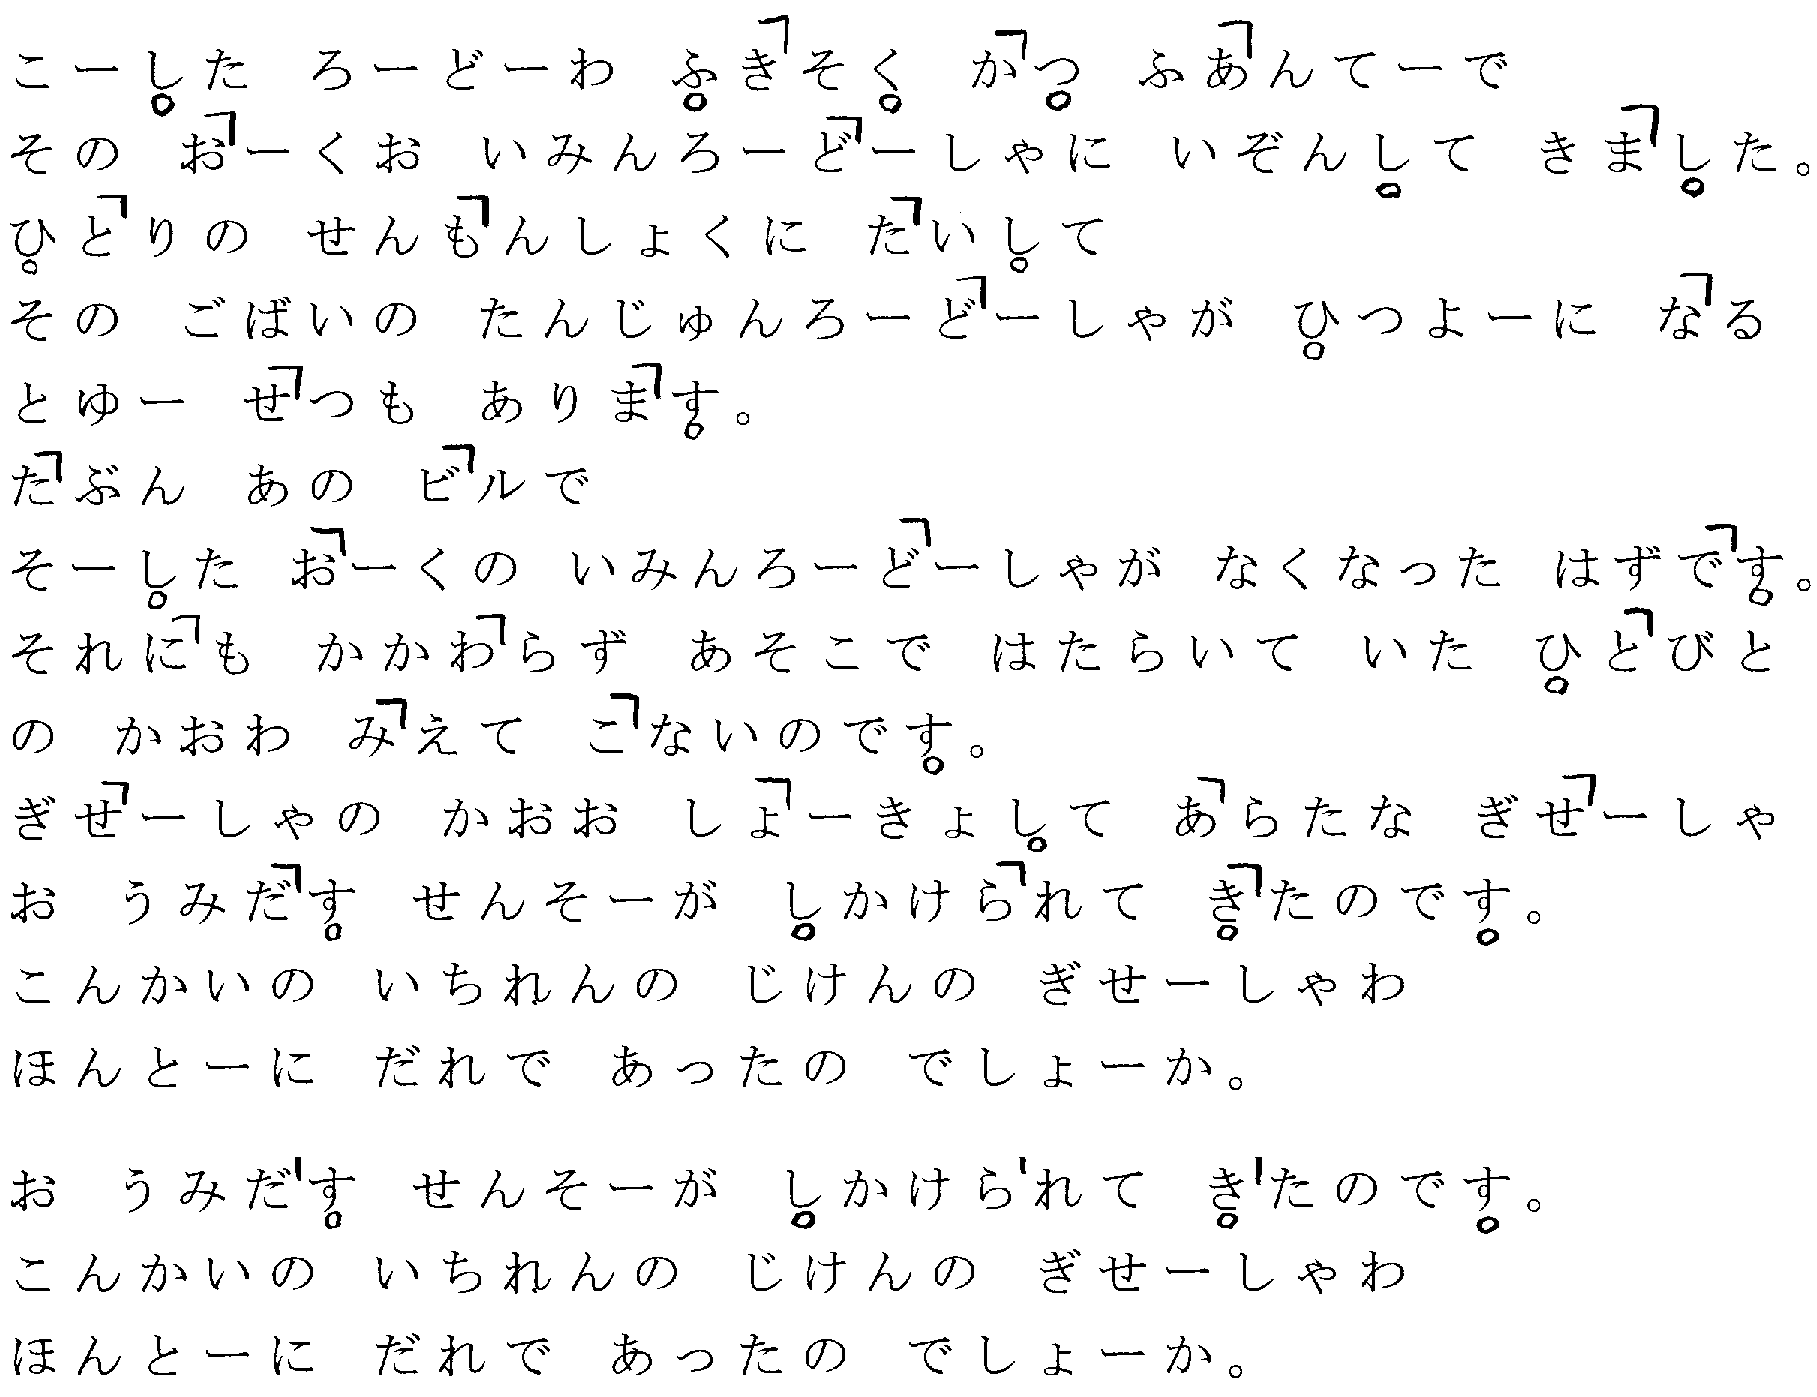 こーした ろーどーわ ふきそく かつ ふあんてーで
その おーくお いみんろーどーしゃに いぞんして きました。
ひとりの せんもんしょくに たいして
その ごばいの たんじゅんろーどーしゃが ひつよーに なる
とゆー せつも あります。
たぶん あの ビルで
そーした おーくの いみんろーどーしゃが なくなった はずです。
それにも かかわらず あそこで はたらいて いた ひとびと
の かおわ みえて こないのです。
ぎせーしゃの かおお しょーきょして あらたな ぎせーしゃ
お うみだす せんそーが しかけられて きたのです。
こんかいの いちれんの じけんの ぎせーしゃわ
ほんとーに だれで あったの でしょーか。
お うみだす せんそーが しかけられて きたのです。
こんかいの いちれんの じけんの ぎせーしゃわ
ほんとーに だれで あったの でしょーか。